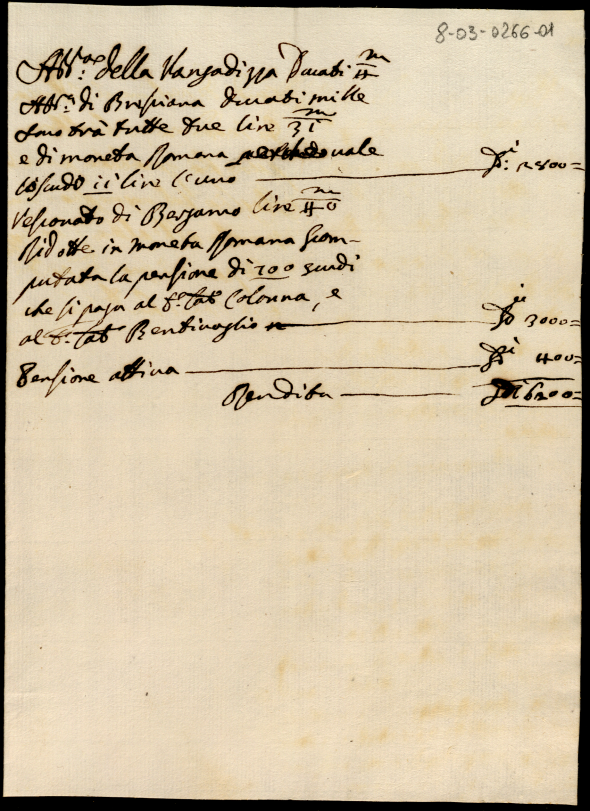 8-03-0266-01
Abb.a della Vangadizza Ducati 4 m
Abb.a di Bresciana ducati mille
sono trà tutte due lire 31 m
e di moneta Romana vale
lo scudo 11 lire l'uno — 2800=
Vescovato di Bergamo lire 40 m
Ridotte in moneta Romana Com-
putata la pensione di 700 scudi
che si paga al S.r Car.l Colonna, e
al S.r Car.l Bentivoglio — 3000=
Pensione attiva — 400=
Rendita — 6200=